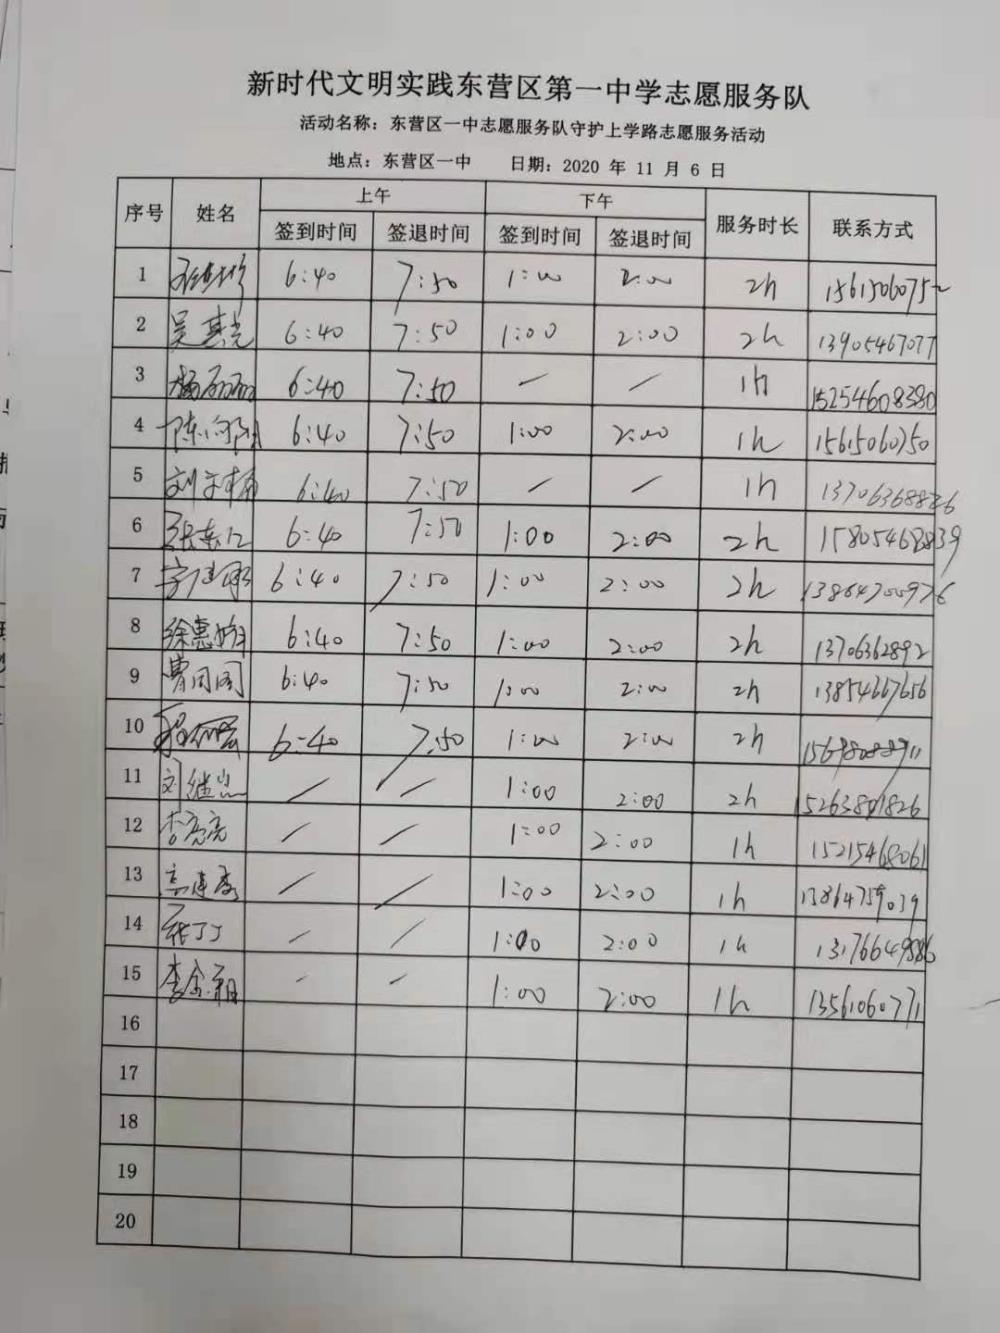 新时代文明实践东营区第一中学志愿服务队
活动名称：东营区一中志愿服务队守护上学路志愿服务活动
地点：东营区一中 日期：2020 年 11 月 6 日
序号 姓名 上午 下午 服务时长 联系方式
签到时间 签退时间 签到时间 签退时间
1 6:40 7:50 1:00 2:00 2h 15615060752
2 吴其光 6:40 7:50 1:00 2:00 2h 13905467077
3 杨丽丽 6:40 7:50 — — 1h 15254608380
4 陈向阳 6:40 7:50 1:00 2:00 1h
5 6:40 7:50 — — 1h
6 张东江 6:40 7:50 1:00 2:00 2h 15805468839
7 6:40 7:50 1:00 2:00 2h 13864700976
8 徐惠娟 6:40 7:50 1:00 2:00 2h 13706362892
9 曹同阁 6:40 7:50 1:00 2:00 2h 13854667656
10 6:40 7:50 1:00 2:00 2h
11 刘继忠 / / 1:00 2:00 2h 15263801826
12 李亮亮 / / 1:00 2:00 1h 15215468061
13 / / 1:00 2:00 1h 13864759039
14 张丁丁 / / 1:00 2:00 1h 13176649886
15 李金翔 / / 1:00 2:00 1h 13561060771
16
17
18
19
20